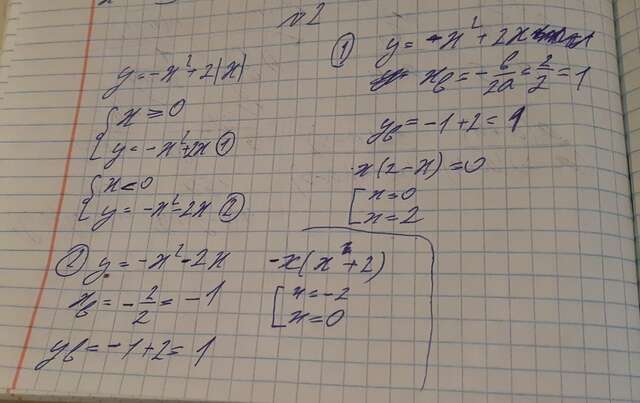 n2
y = -x² + 2|x|
{ x ≥ 0
{ y = -x² + 2x ①
{ x < 0
{ y = -x² - 2x ②
① y = -x² + 2x
x_в = -в/2a = 2/2 = 1
y_в = -1 + 2 = 1
x(2-x) = 0
[ x = 0
[ x = 2
② y = -x² - 2x
x_в = -2/2 = -1
y_в = -1 + 2 = 1
-x(x + 2)
[ x = -2
[ x = 0